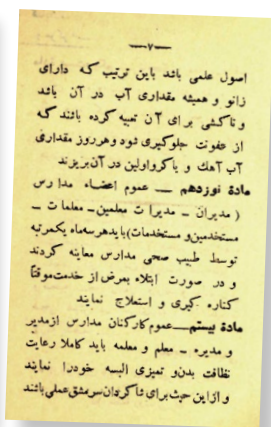 —۷—
اصول علمی باشد باین ترتیب که دارای
زانو و همیشه مقداری آب در آن باشد
و تاکشی برای آن تعبیه کرده باشند که
از عفونت جلوگیری شود و هر روز مقداری
آب آهك و یا کرواولین در آن بریزند
مادۀ نوزدهم — عموم اعضاء مدارس
(مدیران — مدیرات معلمین — معلمات —
مستخدمین و مستخدمات) باید هر سه ماه یکمرتبه
توسط طبیب صحی مدارس معاینه کردند
و در صورت ابتلاء بمرض از خدمت موقتاً
کناره کیری و استعلاج نمایند
مادۀ بیستم — عموم کارکنان مدارس از مدیر
و مدیره — معلم و معلمه باید کاملا رعایت
نظافت بدن و تمیزی البسه خود را نمایند
و از این حیث برای شاکردان سرمشق عملی باشند